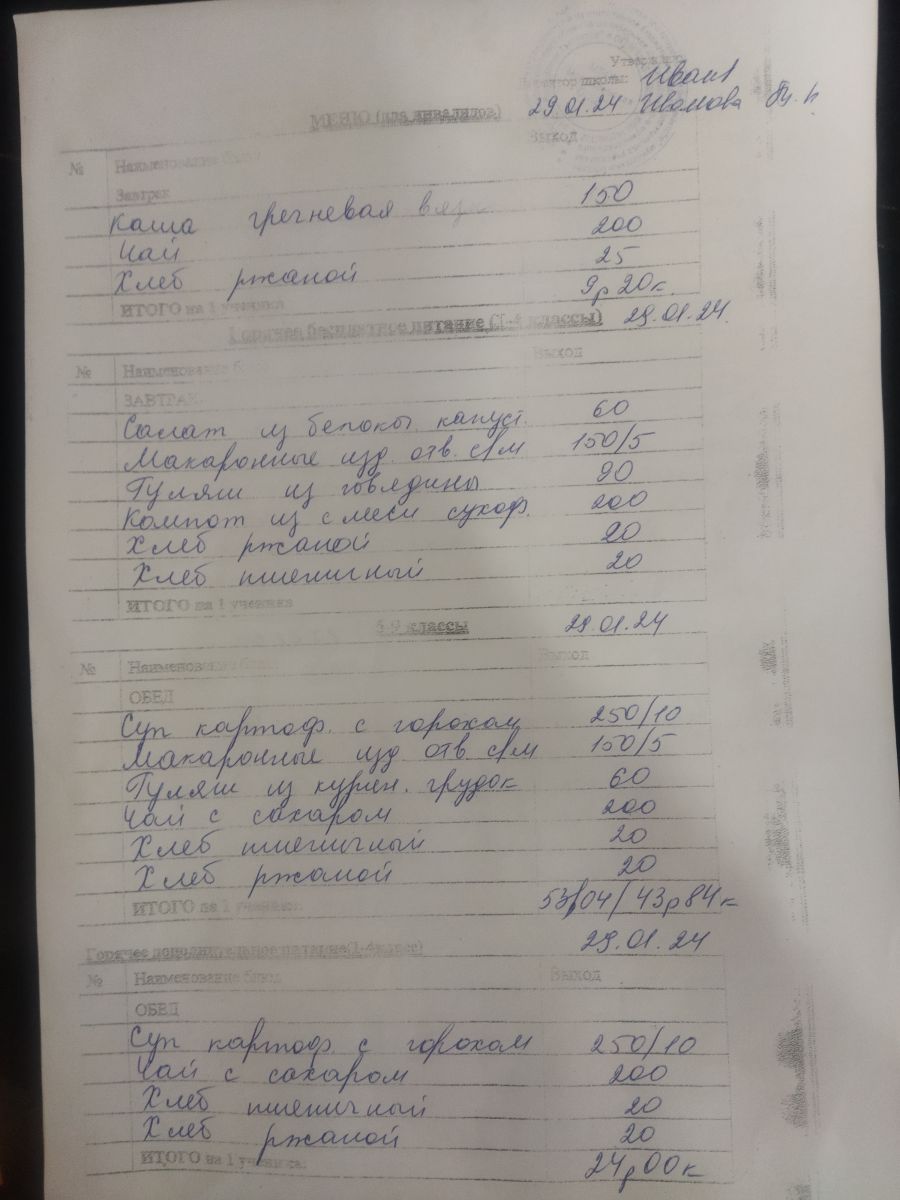 Утверждаю
Директор школы: Иван
МЕНЮ (для инвалидов) 29.01.24 Иванова
№ Наименование блюд Выход
Завтрак
Каша гречневая вязк 150
Чай 200
Хлеб ржаной 25
ИТОГО на 1 ученика 9р 20к.
Горячее бесплатное питание (1-4 классы) 29.01.24.
№ Наименование блюд Выход
ЗАВТРАК
Салат из белокоч. капуст. 60
Макаронные изд. отв. с/м 150/5
Гуляш из говядины 90
Компот из смеси сухоф. 200
Хлеб ржаной 20
Хлеб пшеничный 20
ИТОГО на 1 ученика
5-9 классы 29.01.24
№ Наименование блюд Выход
ОБЕД
Суп картоф. с горохом 250/10
Макаронные изд отв с/м 150/5
Гуляш из курин. грудок 60
Чай с сахаром 200
Хлеб пшеничный 20
Хлеб ржаной 20
ИТОГО на 1 ученика 53р04/43р84к
29.01.24
Горячее дополнительное питание(1-4класс)
№ Наименование блюд Выход
ОБЕД
Суп картоф. с горохом 250/10
Чай с сахаром 200
Хлеб пшеничный 20
Хлеб ржаной 20
ИТОГО на 1 ученика. 24р00к